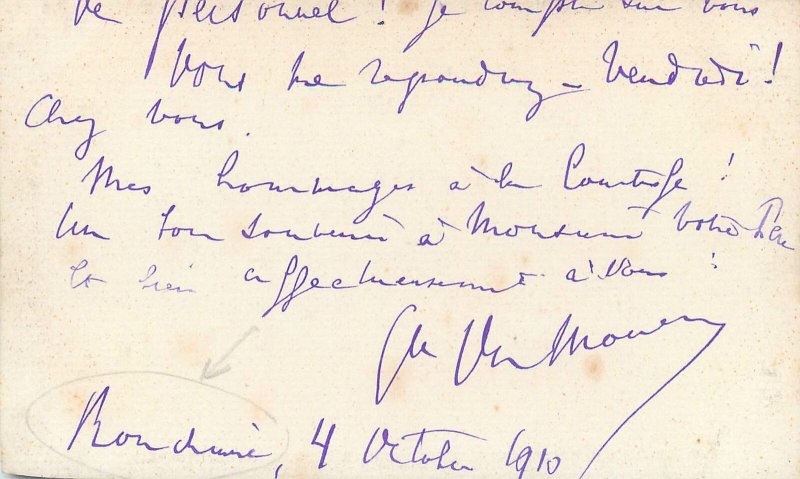 de personnel ! Je compte sur vous
Vous me répondrez - Vendredi !
Chez vous.
Mes hommages à la Comtesse !
Un bon souvenir à Monsieur votre Père
Et bien affectueusement à Vous !
Van
4 October 1910